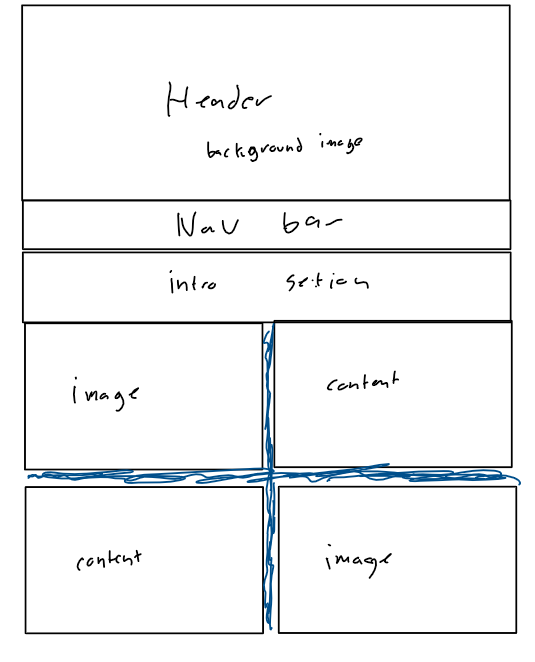 Header
background image
Nav bar
intro section
image
content
content
image